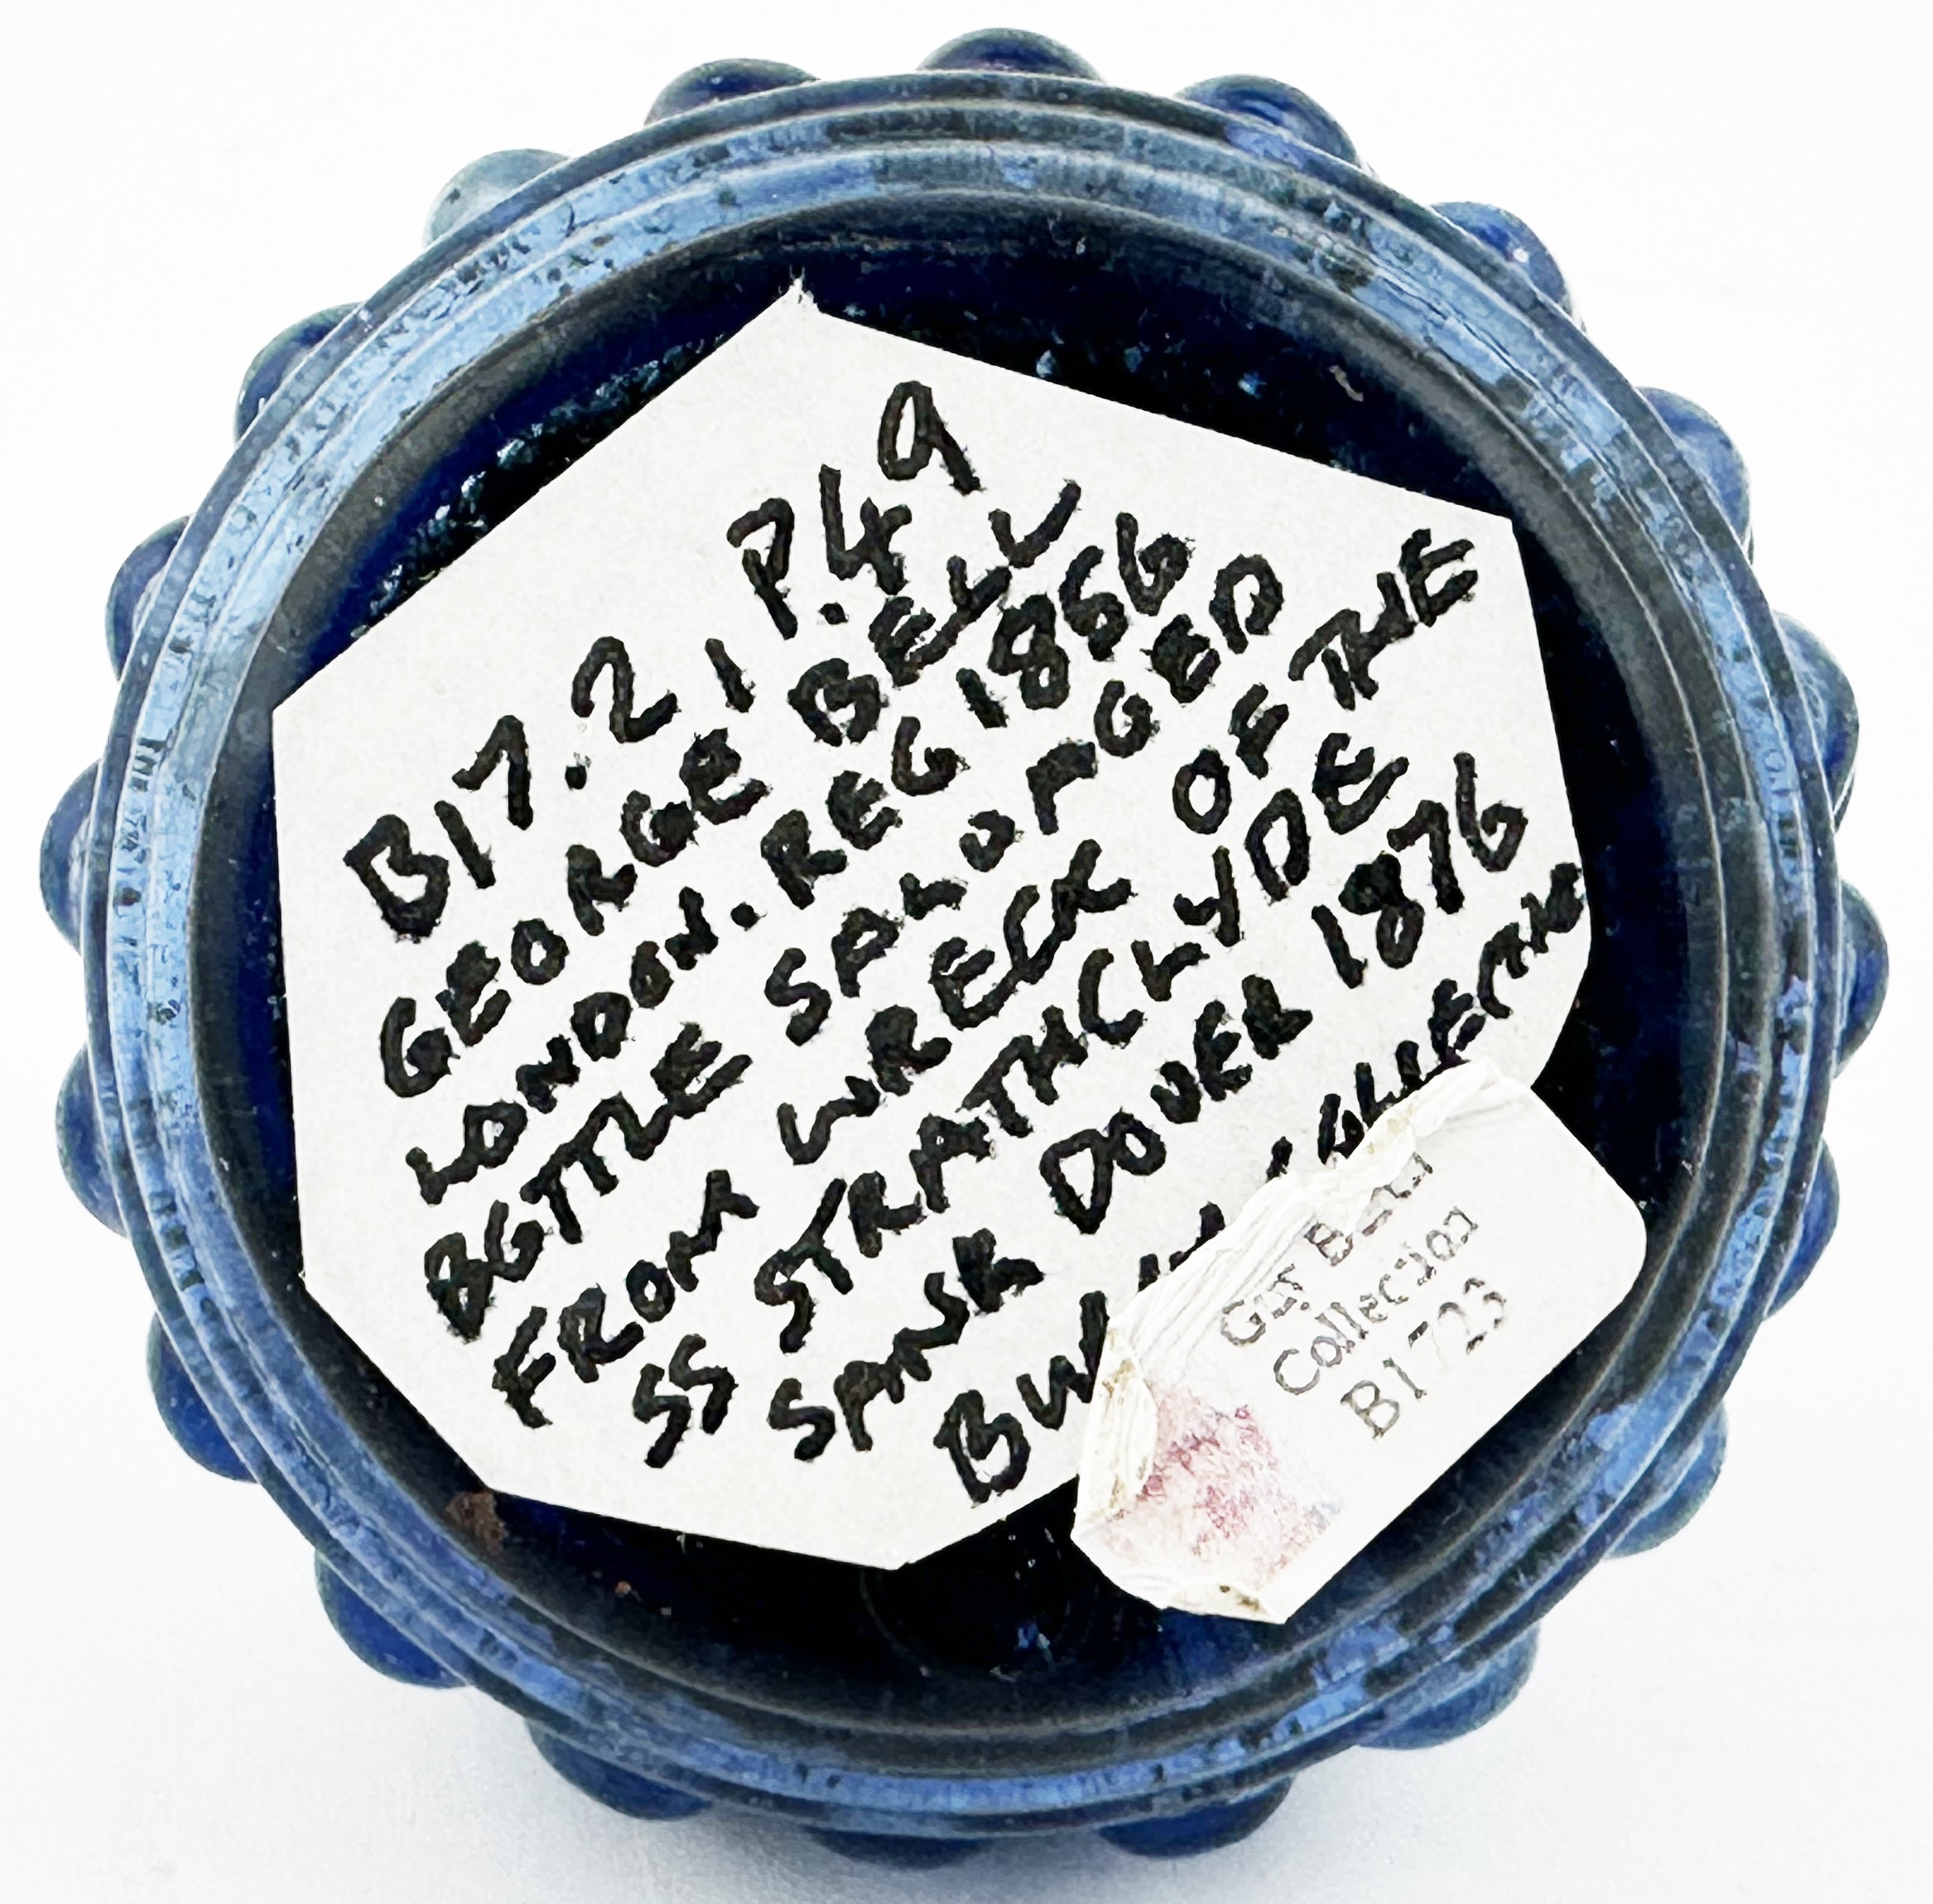 B17.21 P.49
GEORGE BELL
LONDON. REG 1856
BOTTLE SALVAGED
FROM WRECK OF THE
SS STRATHCLYDE
SANK DOVER 1876
Collection
B1723